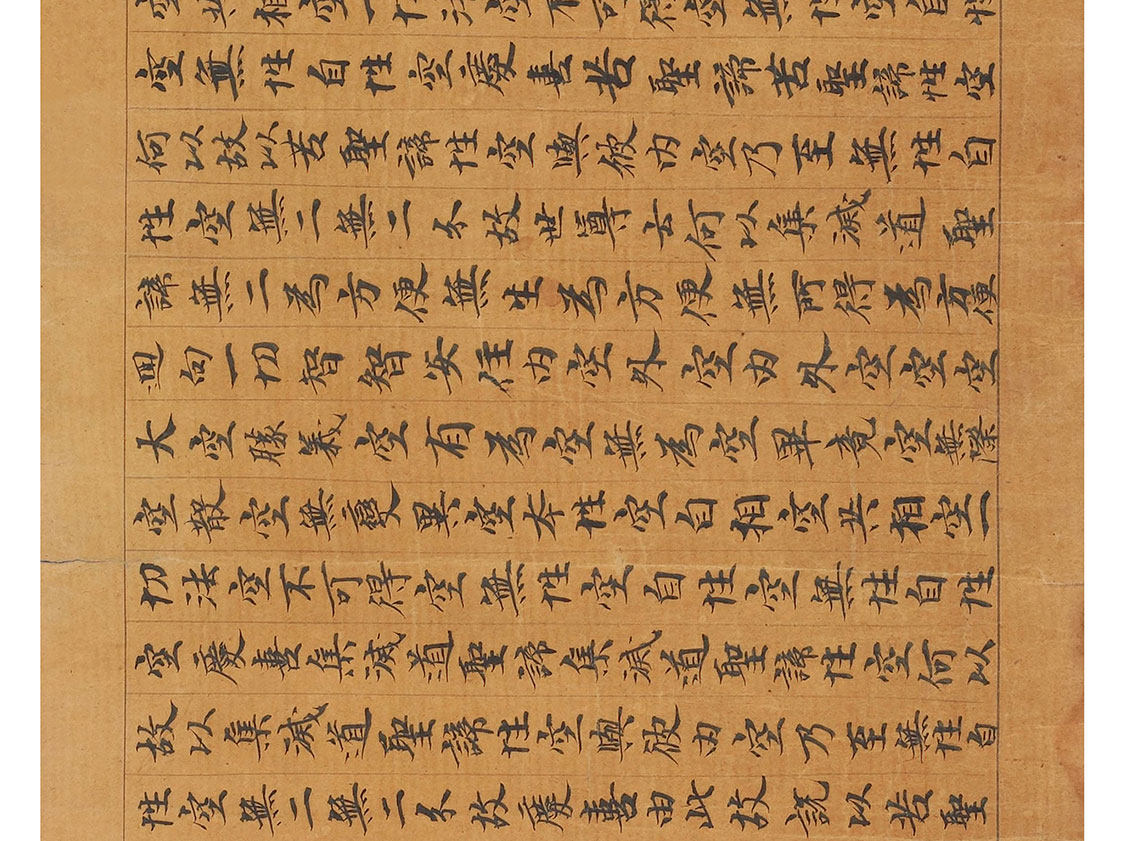 空共相空一切法空不可得空無性空自性
空無性自性空慶喜苦聖諦苦聖諦性空
何以故以苦聖諦性空與彼内空乃至無性自
性空無二無二分故世尊云何以集滅道聖
諦無二為方便無生為方便無所得為方便
迴向一切智智安住内空外空内外空空空
大空勝義空有為空無為空畢竟空無際
空散空無變異空本性空自相空共相空一
切法空不可得空無性空自性空無性自性
空慶喜集滅道聖諦集滅道聖諦性空何以
故以集滅道聖諦性空與彼内空乃至無性自
性空無二無二分故慶喜由此故說以苦聖